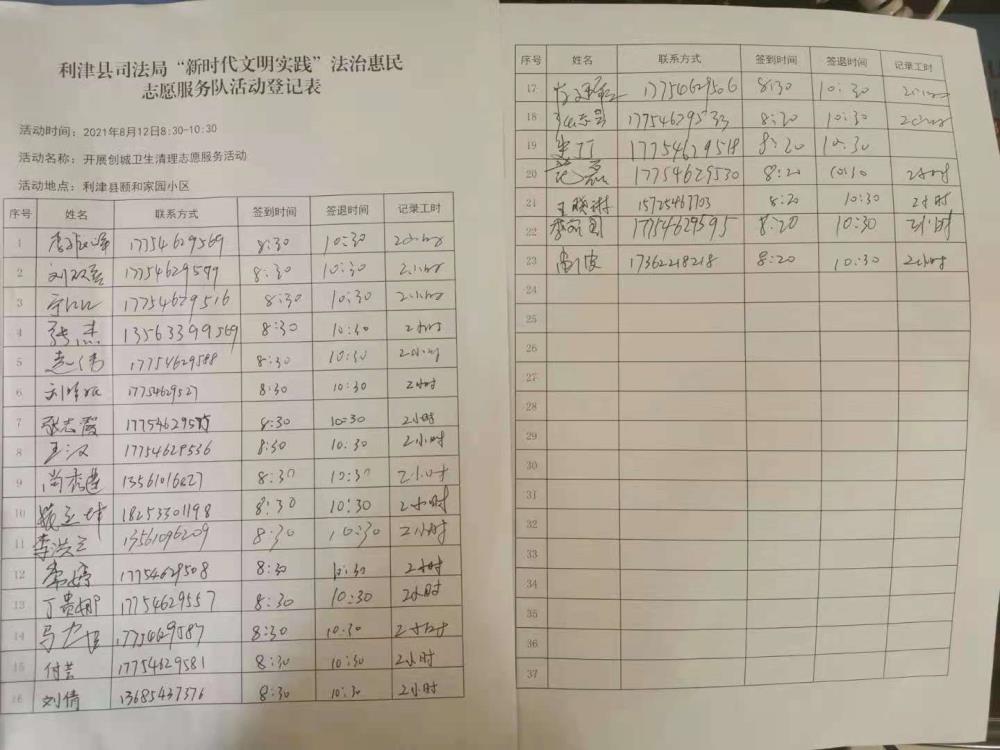 利津县司法局“新时代文明实践”法治惠民
志愿服务队活动登记表
活动时间：2021年8月12日8:30-10:30
活动名称：开展创城卫生清理志愿服务活动
活动地点：利津县颐和家园小区
序号 姓名 联系方式 签到时间 签退时间 记录工时
1 17754629569 8:30 10:30 2小时
2 17754629577 8:30 10:30 2小时
3 17754629516 8:30 10:30 2小时
4 张杰 13563399569 8:30 10:30 2小时
5 17754629588 8:30 10:30 2小时
6 17754629527 8:30 10:30 2小时
7 张志霞 8:30 10:30 2小时
8 王汉 17754629536 8:30 10:30 2小时
9 尚秀莲 8:30 10:30 2小时
10 18253301198 8:30 10:30 2小时
11 李洪 13561096209 8:30 10:30 2小时
12 常婷 17754629508 8:30 10:30 2小时
13 丁贵娜 17754629557 8:30 10:30 2小时
14 马 17754629587 8:30 10:30 2小时
15 付芸 17754629581 8:30 10:30 2小时
16 刘倩 13685437376 8:30 10:30 2小时
序号 姓名 联系方式 签到时间 签退时间 记录工时
17 17754629506 8:30 10:30 2小时
18 17754629533 8:20 10:30 2小时
19 17754629518 8:20 10:30
20 范磊 17754629530 8:20 10:10 2小时
21 王晓琳 15725467703 8:20 10:30 2小时
22 17754629595 8:20 10:30 2小时
23 17362218218 8:20 10:30 2小时
24
25
26
27
28
29
30
31
32
33
34
35
36
37